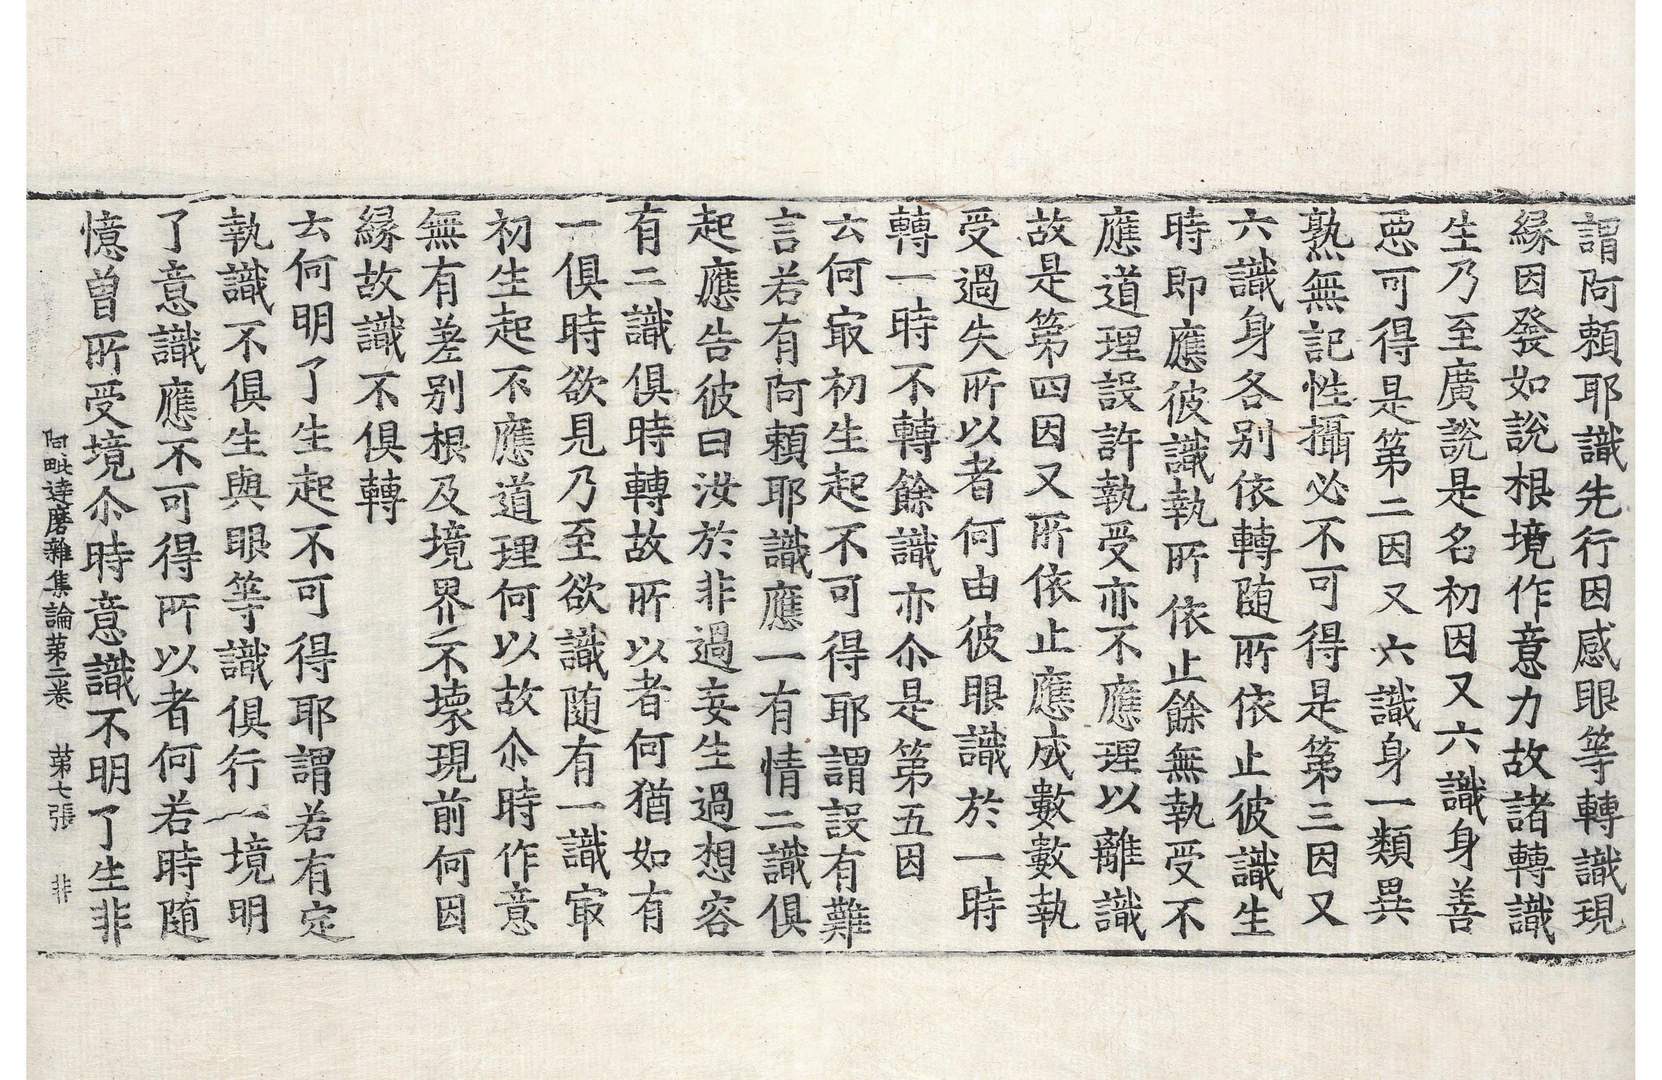 謂阿賴耶識先行因感眼等轉識現
縁因發如說根境作意力故諸轉識
生乃至廣說是名初因又六識身善
惡可得是第二因又六識身一類異
熟無記性攝必不可得是第三因又
六識身各別依轉随所依止彼識生
時即應彼識執所依止餘無執受不
應道理設許執受亦不應理以離識
故是第四因又所依止應成數數執
受過失所以者何由彼眼識於一時
轉一時不轉餘識亦尒是第五因
云何㝡初生起不可得耶謂設有難
言若有阿賴耶識應一有情二識俱
起應告彼曰汝於非過妄生過想容
有二識俱時轉故所以者何猶如有
一俱時欲見乃至欲識随有一識㝡
初生起不應道理何以故尒時作意
無有差別根及境界不壞現前何因
縁故識不俱轉
云何明了生起不可得耶謂若有定
執識不俱生與眼等識俱行一境明
了意識應不可得所以者何若時随
憶曾所受境尒時意識不明了生非
阿毗達磨雜集論第二卷 第七張 非